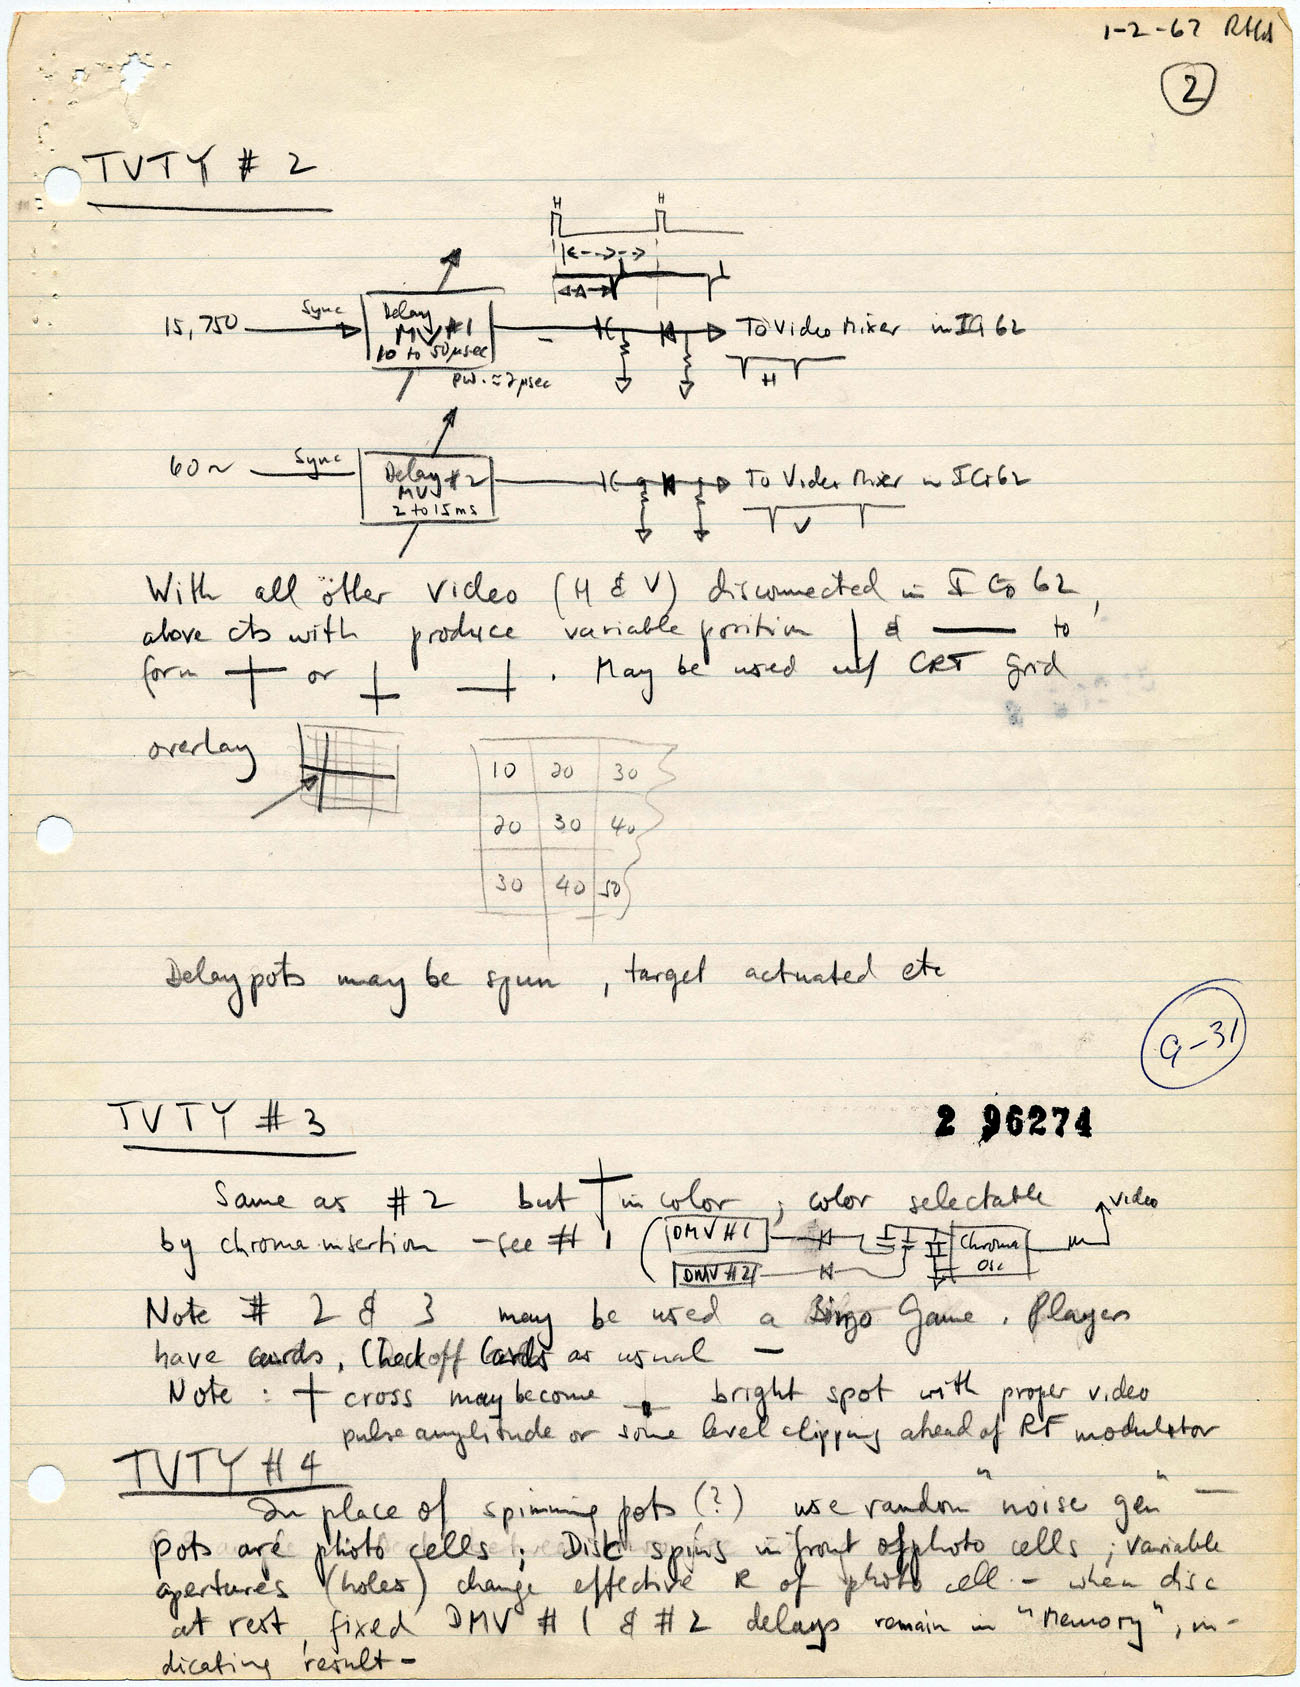 1-2-67 RHB
2
TVTY # 2
H H
15,750 Sync Delay MV #1 10 to 50 µsec To Video Mixer in IG 62
PW. ≈ 2 µsec
H
60~ Sync Delay MV #2 2 to 15 ms To Video Mixer in IG 62
V
With all other video (H & V) disconnected in IG 62,
above cts with produce variable position | & — to
form + or ⊥ ⊣ . May be used w/ CRT Grid
overlay
10 20 30
20 30 40
30 40 50
Delay pots may be spun, target actuated etc
9-31
TVTY # 3
2 96274
Same as #2 but + in color ; color selectable
by chroma insertion – see # 1 (DMV #1 Chroma Osc Video
DMV #2
Note # 2 & 3 may be used a Bingo Game. Players
have cards, Check off Cards as usual —
Note : + cross may become bright spot with proper video
pulse amplitude or some level clipping ahead of RF modulator
TVTY #4
In place of spinning pots (?) use random "noise gen" —
Pots are photo cells ; Disc spins in front of photo cells ; variable
apertures (holes) change effective R of photo cell – when disc
at rest, fixed DMV #1 & #2 delays remain in "Memory", in-
dicating result –